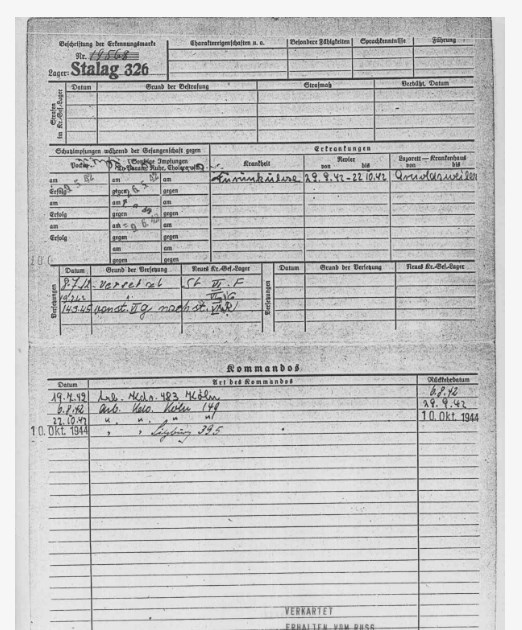 Beschriftung der Erkennungsmarke
Nr. 19568
Lager: Stalag 326
Charaktereigenschaften u. a.
Besondere Fähigkeiten
Sprachkenntnisse
Führung
Strafen im Kr.-Gef.-Lager
Datum
Grund der Bestrafung
Strafmaß
Verbüßt, Datum
Schutzimpfungen während der Gefangenschaft gegen
Erkrankungen
Pocken
Sonstige Impfungen
Krankheit
Revier
von bis
Lazarett — Krankenhaus
von bis
am am am
Erfolg gegen gegen
am am am
Erfolg gegen gegen
am am am
Erfolg gegen gegen
am am
gegen gegen
29.9.42-22.10.42
Versetzungen
Datum
Grund der Versetzung
Neues Kr.-Gef.-Lager
Versetzungen
Datum
Grund der Versetzung
Neues Kr.-Gef.-Lager
versetzt St. VI F
VI G
Kommandos
Datum
Art des Kommandos
Rückkehrdatum
19.7.42 Arb. Kdo. 483 Köln 6.8.42
6.8.42 Arb. Kdo. Köln 149 29.9.42
22.10.42 " " " " 10. Okt. 1944
10. Okt. 1944 " " 395
VERKARTET
ERHALTEN VOM RUSS